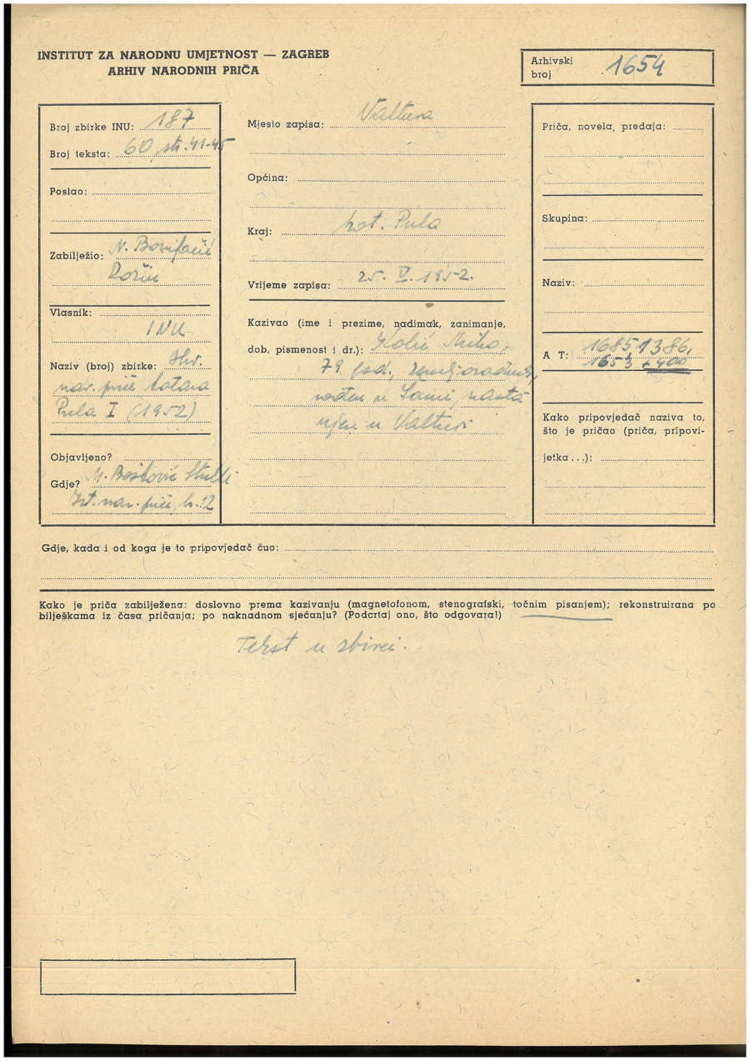 INSTITUT ZA NARODNU UMJETNOST — ZAGREB
ARHIV NARODNIH PRIČA
Arhivski
broj 1654
Broj zbirke INU: 187
Broj teksta: 60, str. 41-45
Poslao:
Zabilježio: N. Bonifačić
Rožin
Vlasnik:
INU
Naziv (broj) zbirke: Hrv.
nar. priče kotara
Pula I (1952)
Objavljeno?
Gdje? M. Bošković Stulli
Ist. nar. priče, br. 12
Mjesto zapisa: Valtura
Općina:
Kraj: kot. Pula
Vrijeme zapisa: 25. V. 1952.
Kazivao (ime i prezime, nadimak, zanimanje,
dob, pismenost i dr.): Miho,
79 god., zemljoradnik,
rođen u nasta
njen u Valturi
Priča, novela, predaja:
Skupina:
Naziv:
A T: 1685 1386,
1653 + 400
Kako pripovjedač naziva to,
što je pričao (priča, pripovi-
jetka...):
Gdje, kada i od koga je to pripovjedač čuo:
Kako je priča zabilježena: doslovno prema kazivanju (magnetofonom, stenografski, točnim pisanjem); rekonstruirana po
bilješkama iz časa pričanja; po naknadnom sjećanju? (Podcrtaj ono, što odgovara!)
Tekst u zbirci.